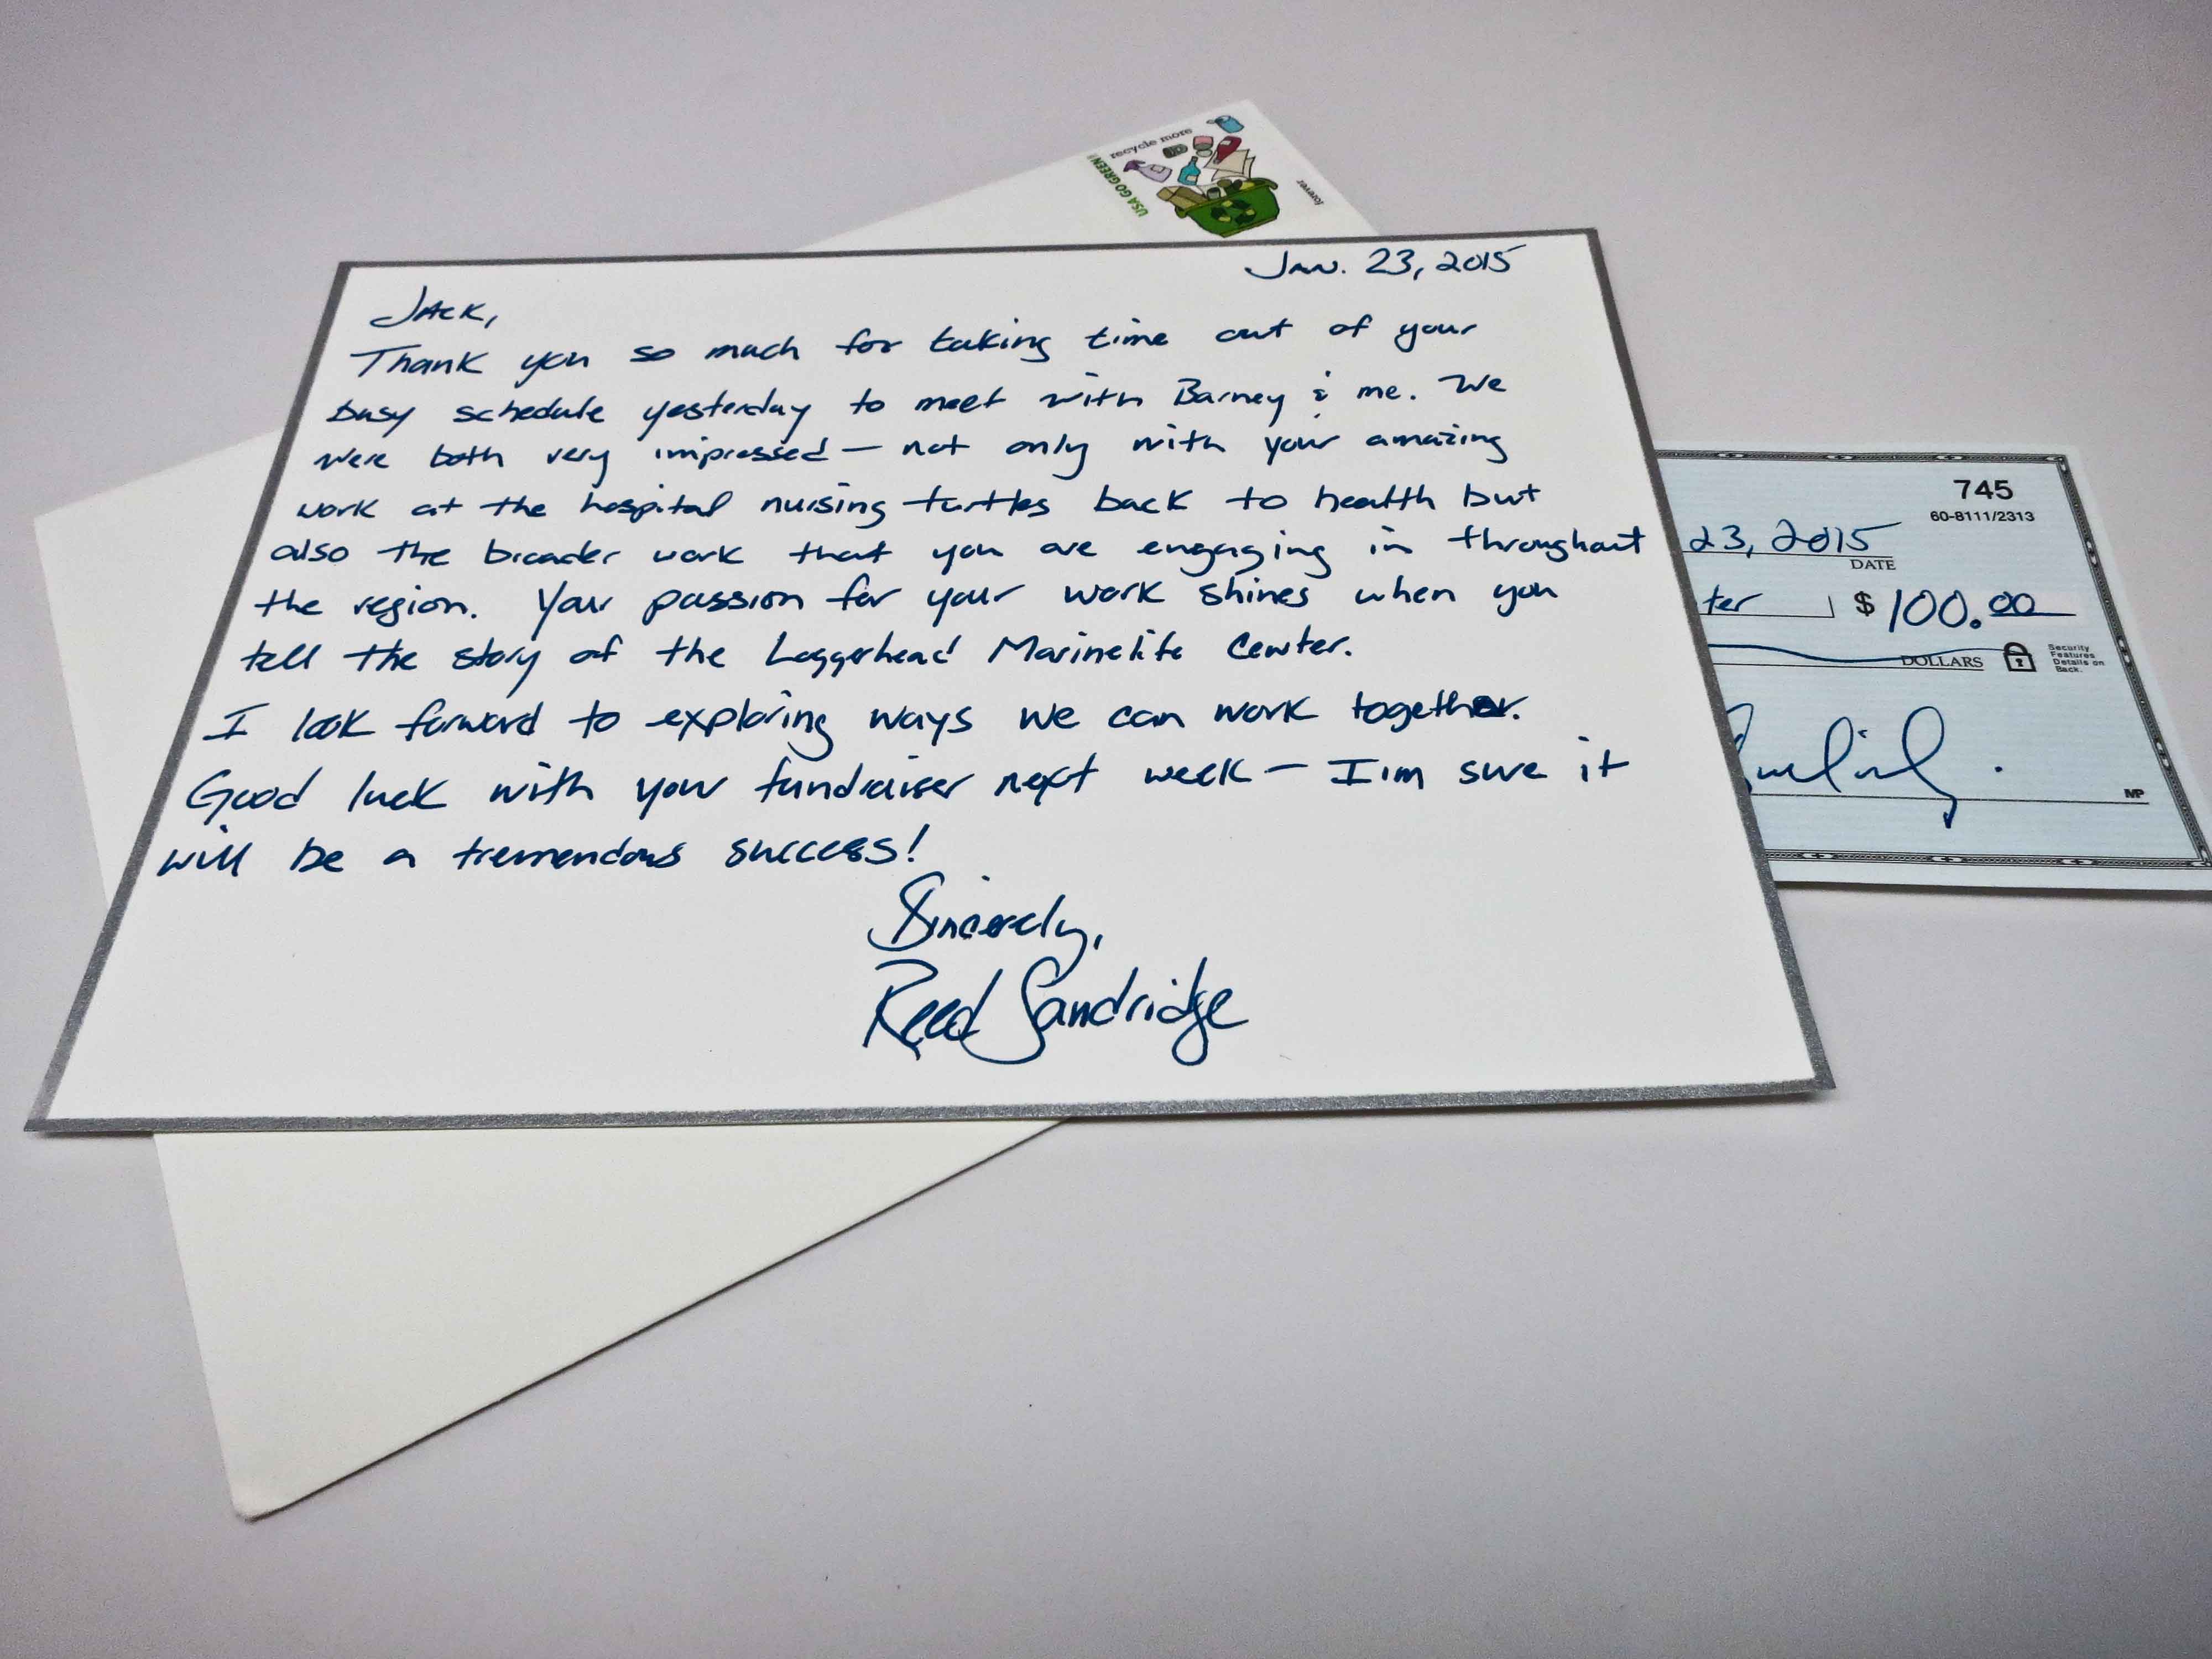 recycle more
USA GO GREEN!
forever
Jan. 23, 2015
Jack,
Thank you so much for taking time out of your
busy schedule yesterday to meet with Barney & me. We
were both very impressed – not only with your amazing
work at the hospital nursing turtles back to health but
also the broader work that you are engaging in throughout
the region. Your passion for your work shines when you
tell the story of the Loggerhead Marinelife Center.
I look forward to exploring ways we can work together.
Good luck with your fundraiser next week – I'm sure it
will be a tremendous success!
Sincerely,
Reed Sandridge
745
60-8111/2313
23, 2015
DATE
ter $ 100.00
DOLLARS
Security
Features
Details on
Back.
MP